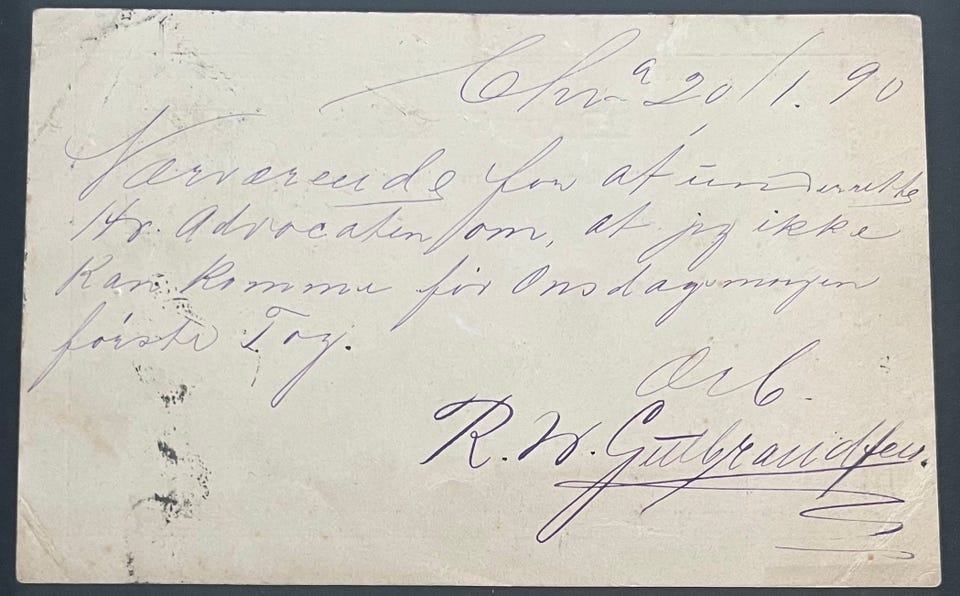 Chr.a 20/1. 90
Nærværende for at underrette
Hr. Advocaten om, at jeg ikke
Kan komme før Onsdagmorgen
første Tog.
Ærb
R. W. Gulbrandsen.